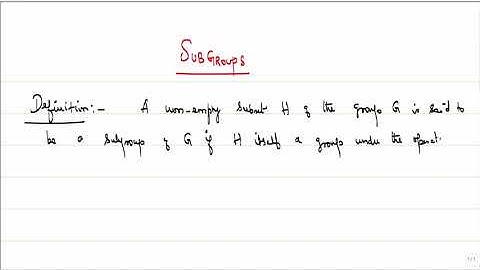 SUBGROUPS
Definition:- A non-empy subset H of the group G is said to
be a subgroup of G if H itself a group under the operat.
1/1